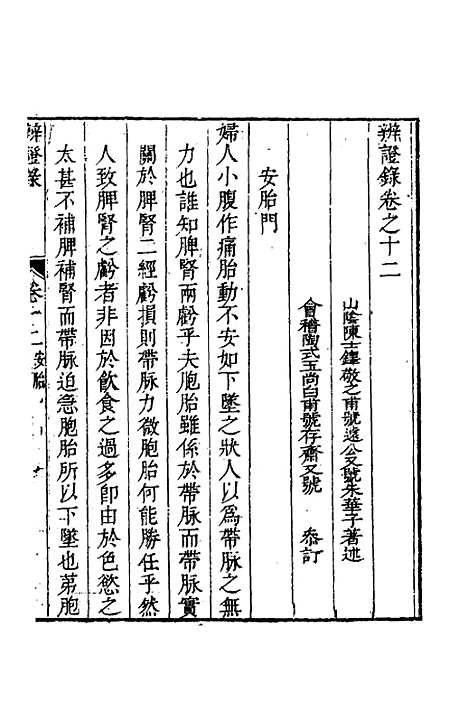 辨證錄卷之十二
山陰陳士鐸敬之甫號遠公又號朱華子著述
會稽陶式玉尚白甫號存齋又號 叅訂
安胎門
婦人小腹作痛胎動不安如下墜之狀人以爲帶脉之無
力也誰知脾腎兩虧乎夫胞胎雖係於帶脉而帶脉實
關於脾腎二經虧損則帶脉力微胞胎何能勝任乎然
人致脾腎之虧者非因於飲食之過多卽由於色慾之
太甚不補脾補腎而帶脉迫急胞胎所以下墜也第胞
辨證录
卷十二 安胎